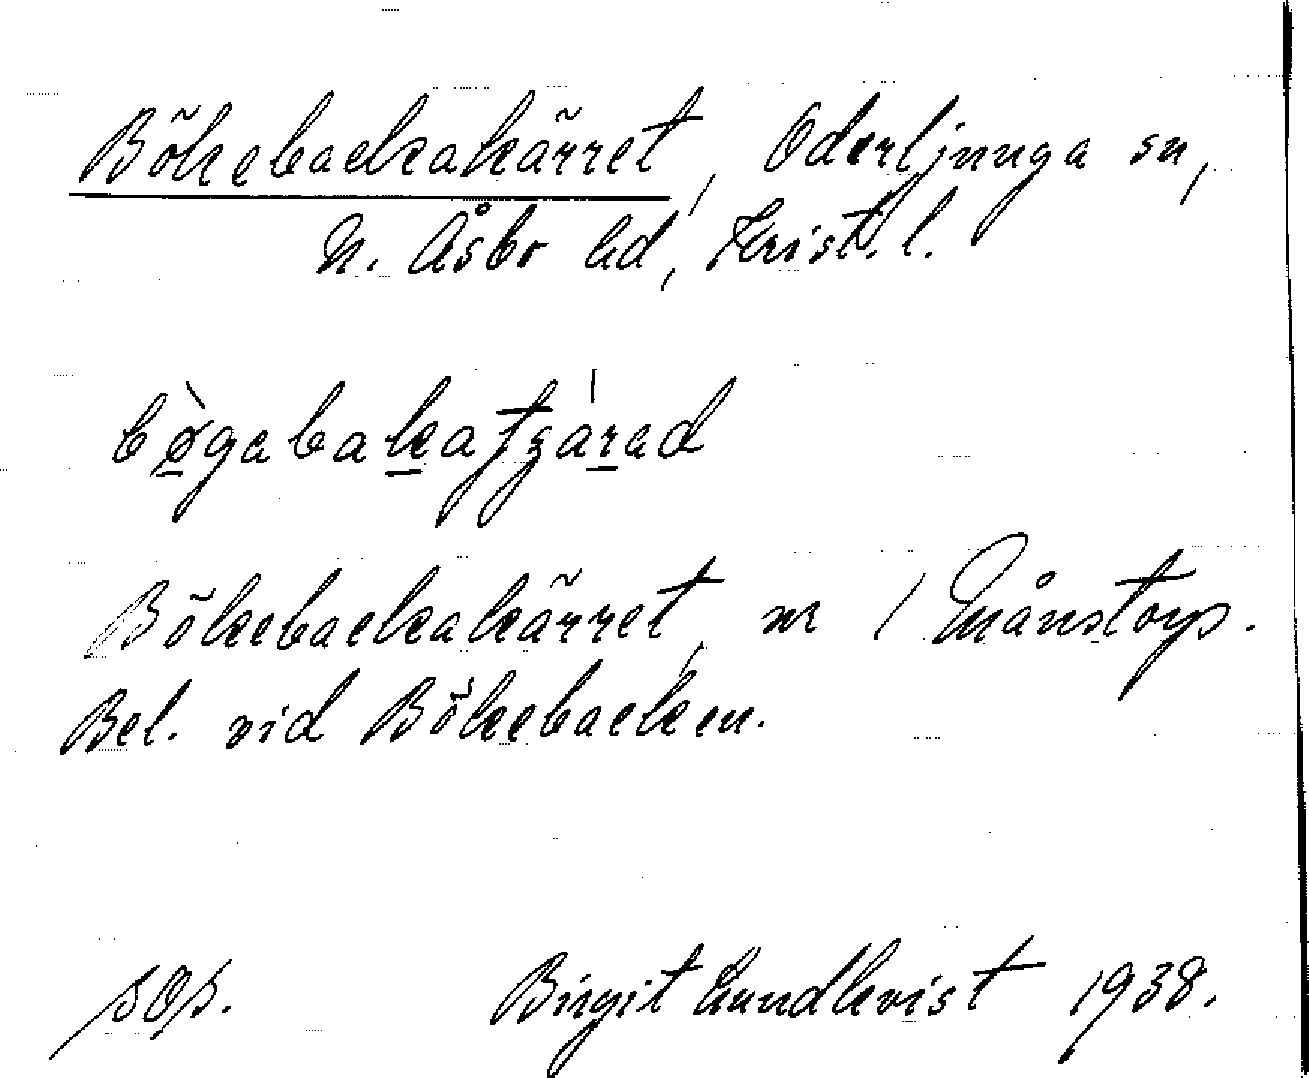 Bökebackakärret, Oderljunga sn,
N. Åsbo hd, Krist. l.
Bökebackakärret, nr 1 Månstorp.
Bel. vid Bökebacken.
sOs. Birgit Lundkvist 1938.